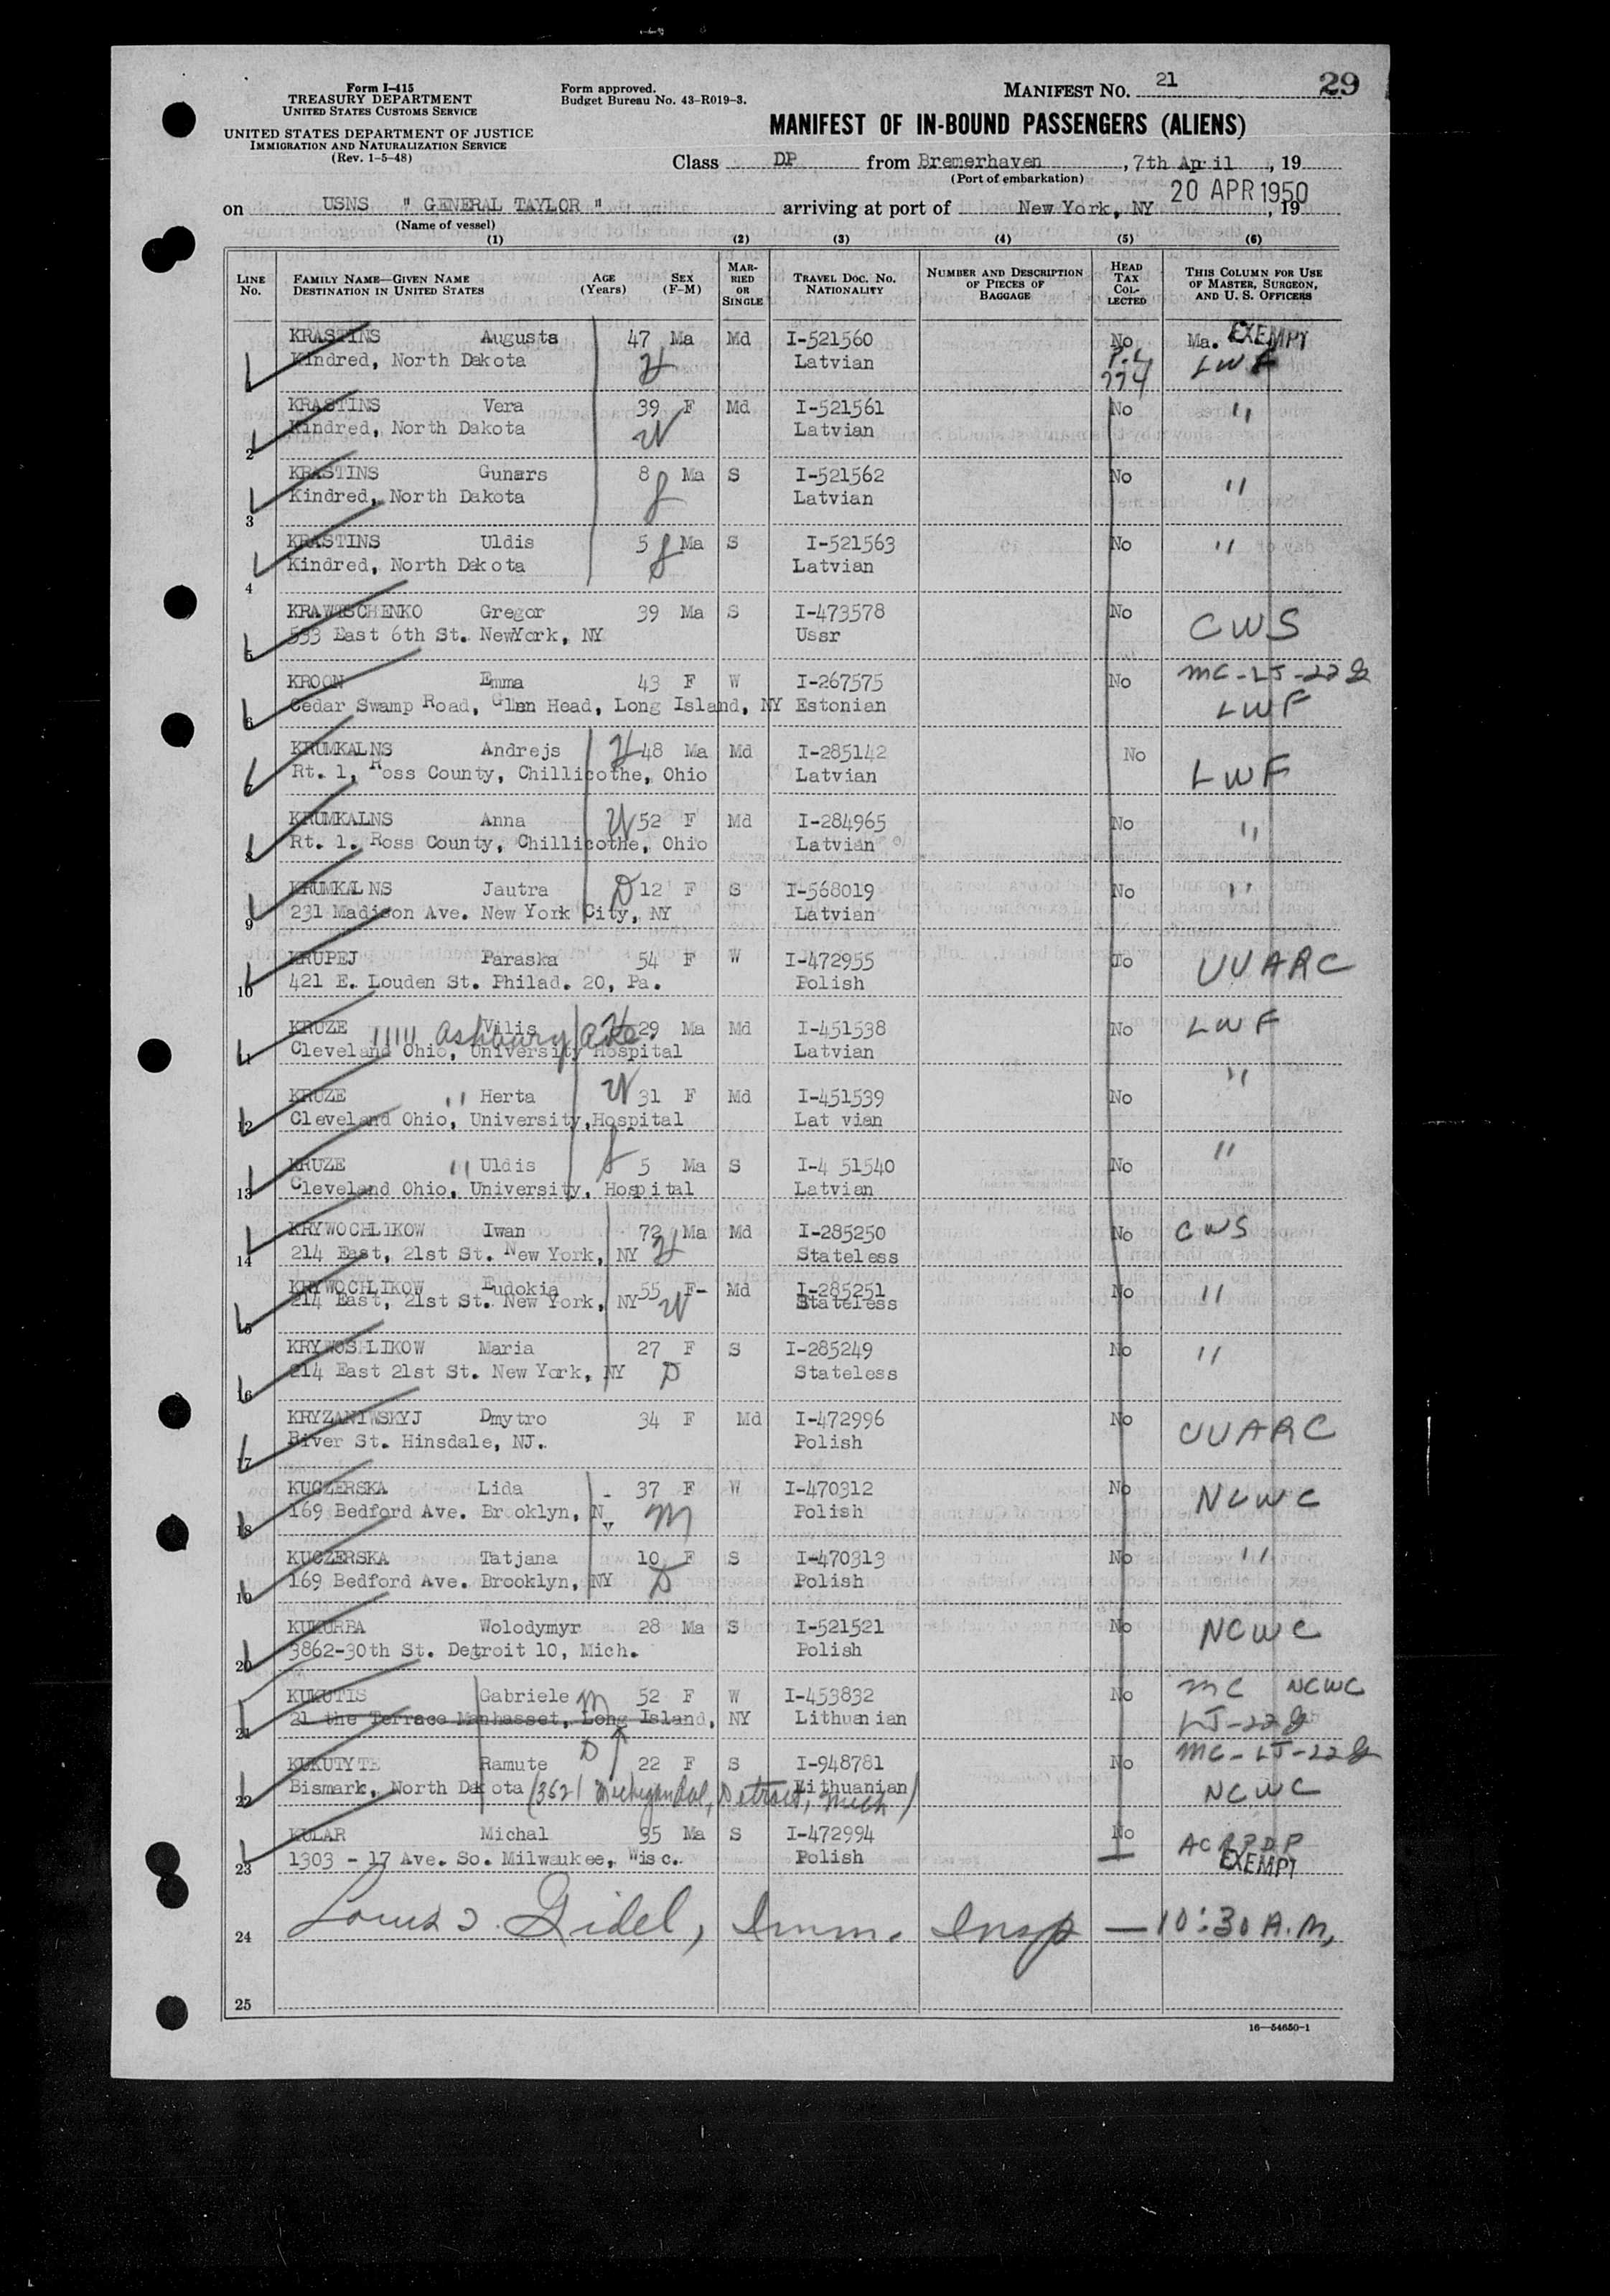 Form I-415
TREASURY DEPARTMENT
UNITED STATES CUSTOMS SERVICE
UNITED STATES DEPARTMENT OF JUSTICE
IMMIGRATION AND NATURALIZATION SERVICE
(Rev. 1-5-48)
Form approved.
Budget Bureau No. 43-R019-3.
MANIFEST NO. 21
29
MANIFEST OF IN-BOUND PASSENGERS (ALIENS)
Class DP from Bremerhaven, 7th April, 19
(Port of embarkation)
20 APR 1950
on USNS " GENERAL TAYLOR " arriving at port of New York, NY, 19
(Name of vessel)
(1) (2) (3) (4) (5) (6)
LINE No. FAMILY NAME—GIVEN NAME DESTINATION IN UNITED STATES AGE (Years) SEX (F-M) MARRIED OR SINGLE TRAVEL DOC. NO. NATIONALITY NUMBER AND DESCRIPTION OF PIECES OF BAGGAGE HEAD TAX COLLECTED THIS COLUMN FOR USE OF MASTER, SURGEON, AND U. S. OFFICERS
KRASTINS Augusts 47 Ma Md I-521560 No Ma. EXEMPT
Kindred, North Dakota H Latvian P.L 774 LWF
KRASTINS Vera 39 F Md I-521561 No "
2 Kindred, North Dakota W Latvian
KRASTINS Gunars 8 Ma S I-521562 No "
3 Kindred, North Dakota Latvian
KRASTINS Uldis 5 Ma S I-521563 No "
4 Kindred, North Dakota Latvian
KRAWTSCHENKO Gregor 39 Ma S I-473578 No CWS
5 533 East 6th St. NewYork, NY Ussr
KROON Emma 43 F W I-267575 No MC-LJ-22
6 Cedar Swamp Road, Glen Head, Long Island, NY Estonian LWF
KRUMKALNS Andrejs H 48 Ma Md I-285142 No
7 Rt. 1, Ross County, Chillicothe, Ohio Latvian LWF
KRUMKALNS Anna W 52 F Md I-284965 No "
8 Rt. 1. Ross County, Chillicothe, Ohio Latvian
KRUMKALNS Jautra D 12 F S I-568019 No "
9 231 Madison Ave. New York City, NY Latvian
KRUPEJ Paraska 54 F W I-472955 To UUARC
10 421 E. Louden St. Philad. 20, Pa. Polish
KRUZE Vilis H 29 Ma Md I-451538 No LWF
11111 Ashbury Ave.
11 Cleveland Ohio, University Hospital Latvian
KRUZE " Herta W 31 F Md I-451539 No "
12 Cleveland Ohio, University,Hospital Lat vian
KRUZE " Uldis 5 Ma S I-4 51540 No "
13 Cleveland Ohio, University, Hospital Latvian
KRYWOCHLIKOW Iwan 72 Ma Md I-285250 No CWS
14 214 East, 21st St. New York, NY H Stateless
KRYWOCHLIKOW Eudokia 55 F- Md I-285251 No "
15 214 East, 21st St. New York, NY W Stateless
KRYWOSHLIKOW Maria 27 F S I-285249 No "
16 214 East 21st St. New York, NY D Stateless
KRYZANIWSKYJ Dmytro 34 F Md I-472996 No UUARC
17 River St. Hinsdale, NJ. Polish
KUCZERSKA Lida - 37 F W I-470312 No NCWC
18 169 Bedford Ave. Brooklyn, NY M Polish
KUCZERSKA Tatjana 10 F S I-470313 No "
19 169 Bedford Ave. Brooklyn, NY D Polish
KUKURBA Wolodymyr 28 Ma S I-521521 No NCWC
20 3862-30th St. Detroit 10, Mich. Polish
KUKUTIS Gabriele M 52 F W I-453832 No MC NCWC
21 21 the Terrace Manhasset, Long Island, NY Lithuanian LJ-22
KUKUTYTE Ramute D 22 F S I-948781 No MC-LJ-22
22 Bismark, North Dakota (3621 Michigan Detroit, Mich) Lithuanian NCWC
KULAR Michal 35 Ma S I-472994 No
23 1303 - 17 Ave. So. Milwaukee, Wisc. Polish EXEMPT
24 Gidel, Imm. Insp — 10:30 A.M.
25
16—54650-1